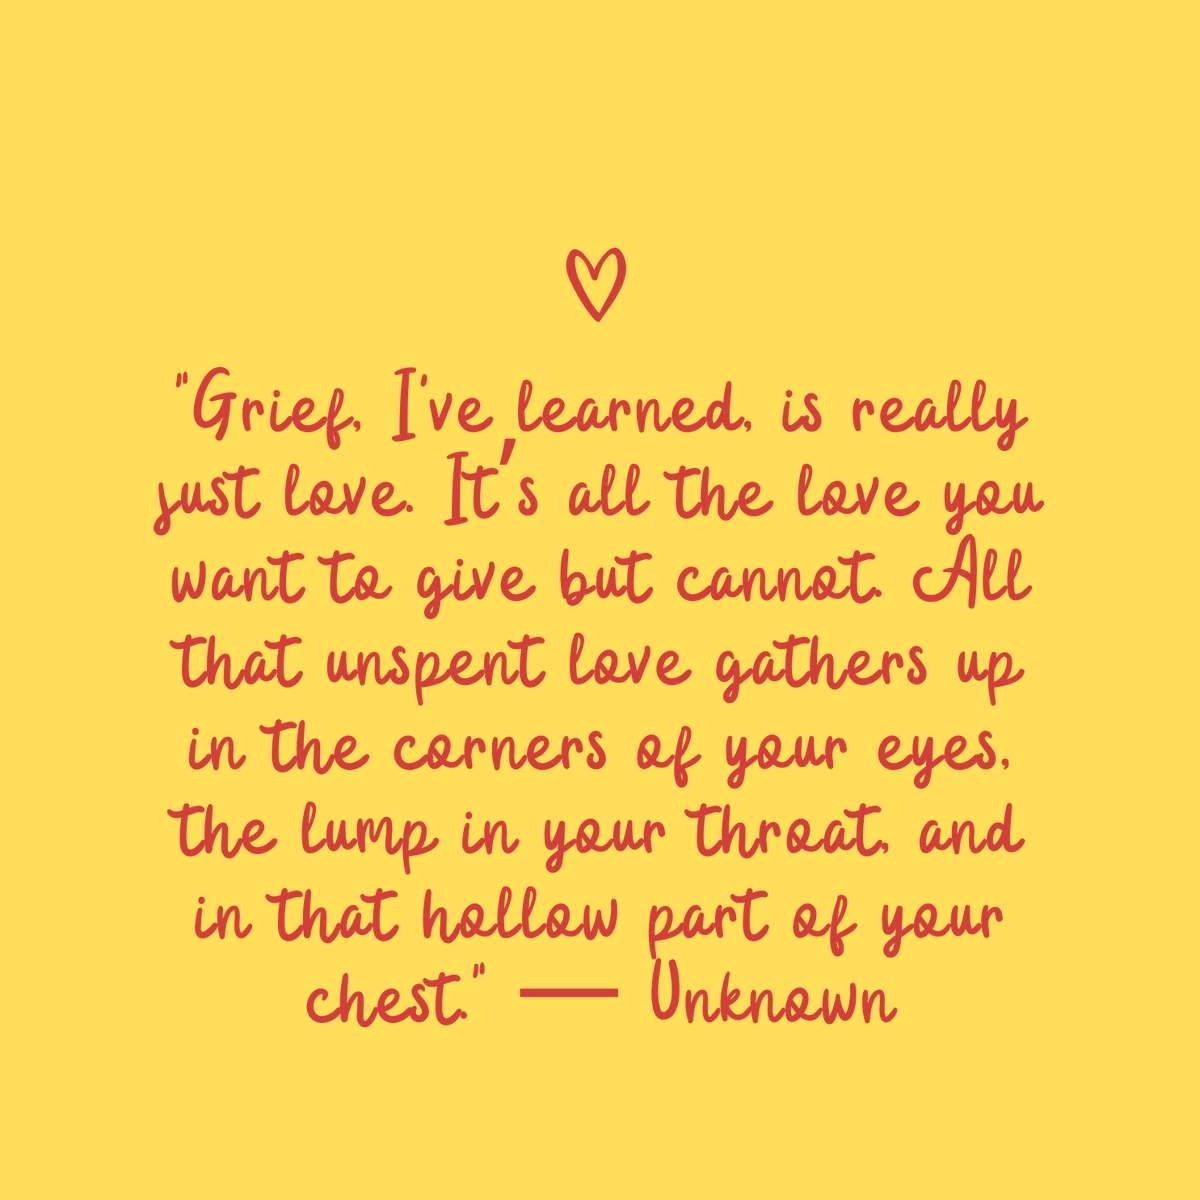 "Grief, I've learned, is really
just love. It's all the love you
want to give but cannot. All
that unspent love gathers up
in the corners of your eyes,
the lump in your throat, and
in that hollow part of your
chest." — Unknown